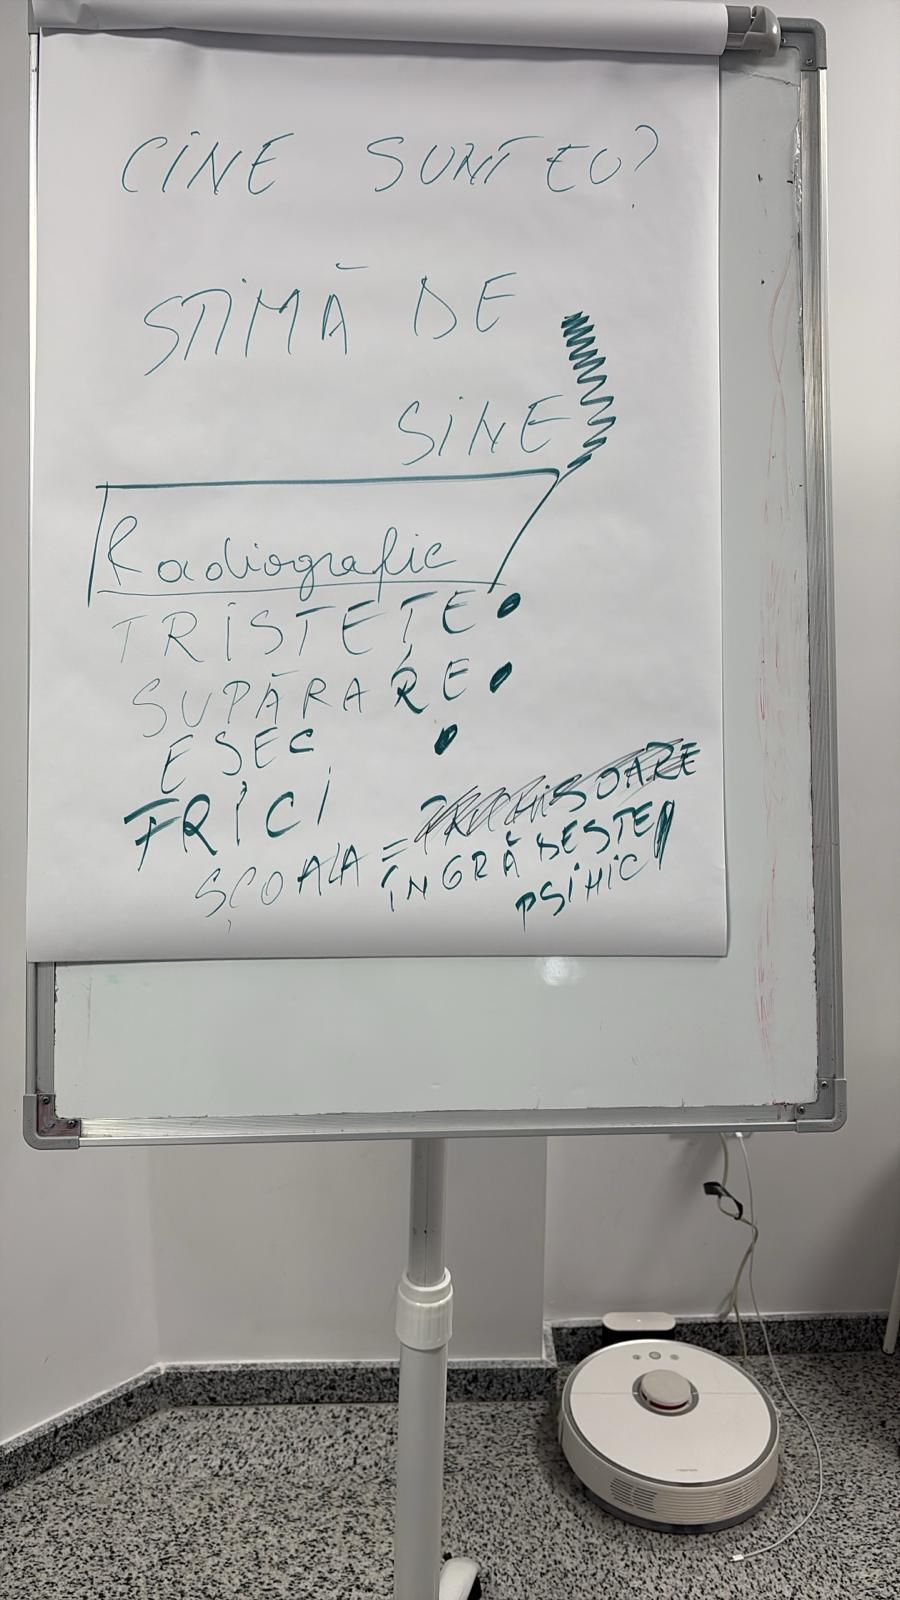 CINE SUNT EU?
STIMĂ DE
SINE
Radiografie
TRISTEȚE
SUPĂRARE
ESEC
FRICI
ȘCOALA = ÎNCHISOARE
ÎNGRĂDEȘTE
PSIHIC